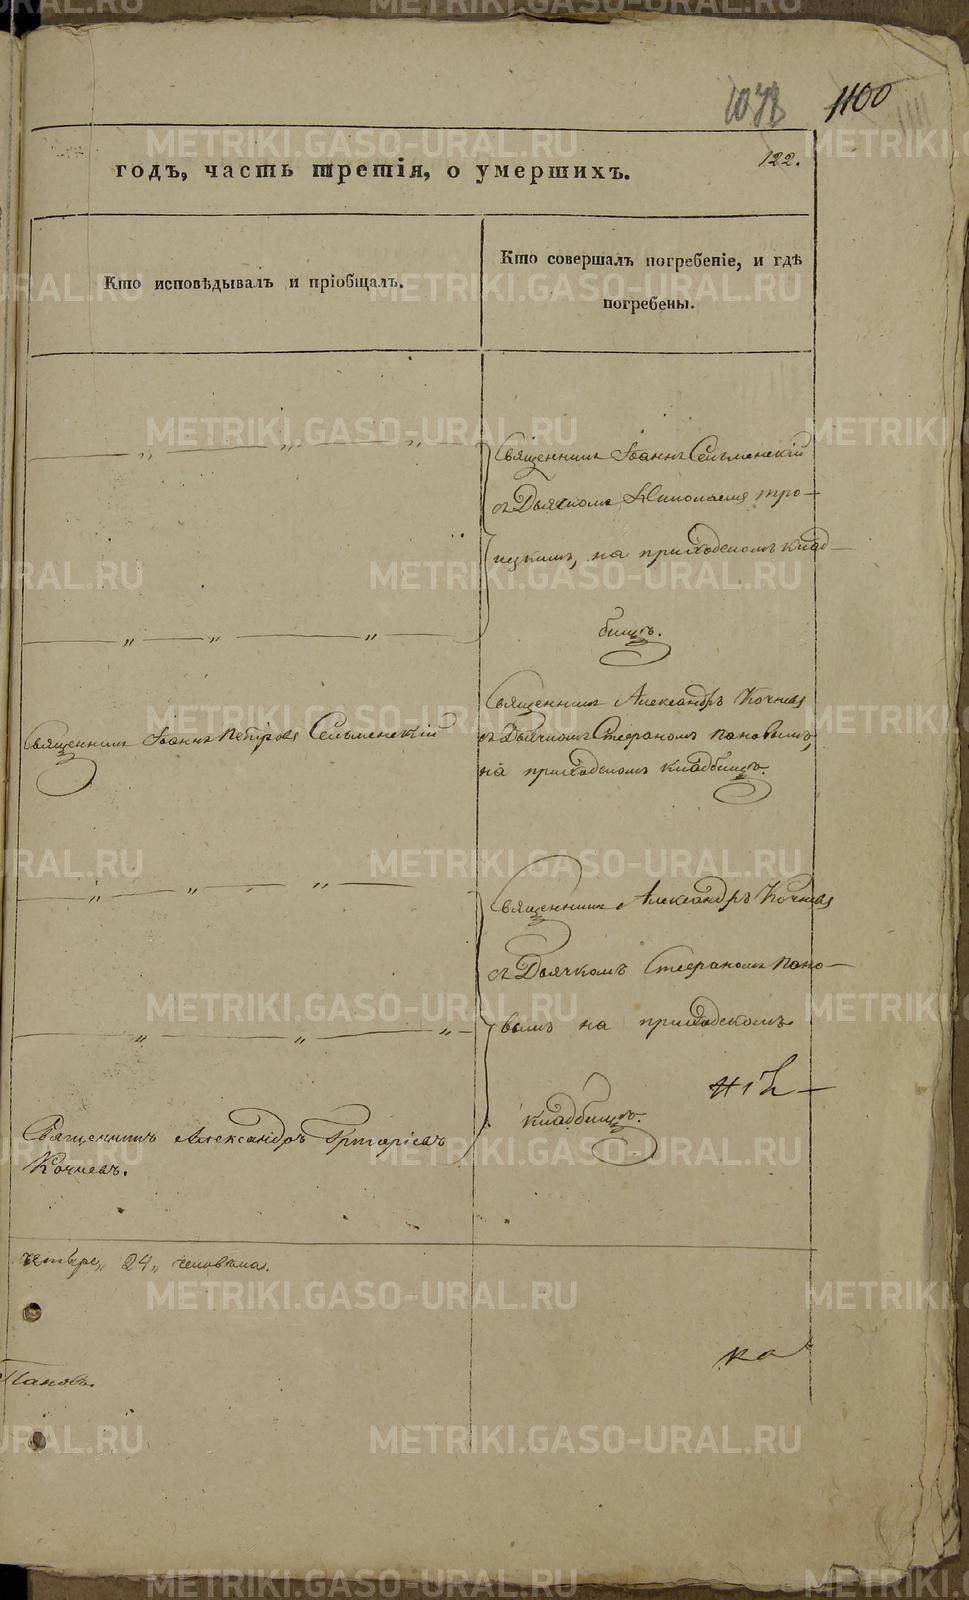 1078 1100
122.
годъ, часть третія, о умершихъ.
Кто исповѣдывалъ и пріобщалъ.
Кто совершалъ погребеніе, и гдѣ
погребены.
Священникъ Іоаннъ Сельменскій
съ Дьячкомъ Николаемъ Тро-
ицкимъ, на приходскомъ клад-
бищѣ.
Священникъ Іоаннъ Петровъ Сельменскій
Священникъ Александръ Кочневъ
съ Дьячкомъ Стефаномъ Пановымъ,
на приходскомъ кладбищѣ.
Священникъ Александръ Кочневъ
съ Дьячкомъ Стефаномъ Пано-
вымъ на приходскомъ
кладбищѣ.
Священникъ Александръ Григоріевъ
Кочневъ.
четыре, 24, человѣка.
ка
Пановъ.
METRIKI.GASO-URAL.RU